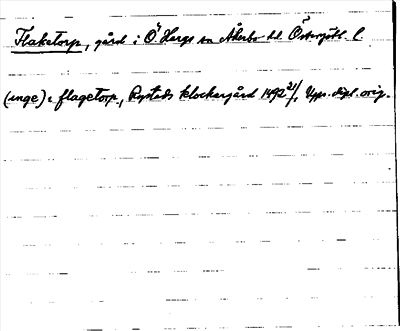 Flaketorp, gård i Ö Hargs sn Åkerbo hd Östergötl. l.
(inge) i flagetorp, Rystads klockargård 1492 21/1 Upps. dipl. orig.